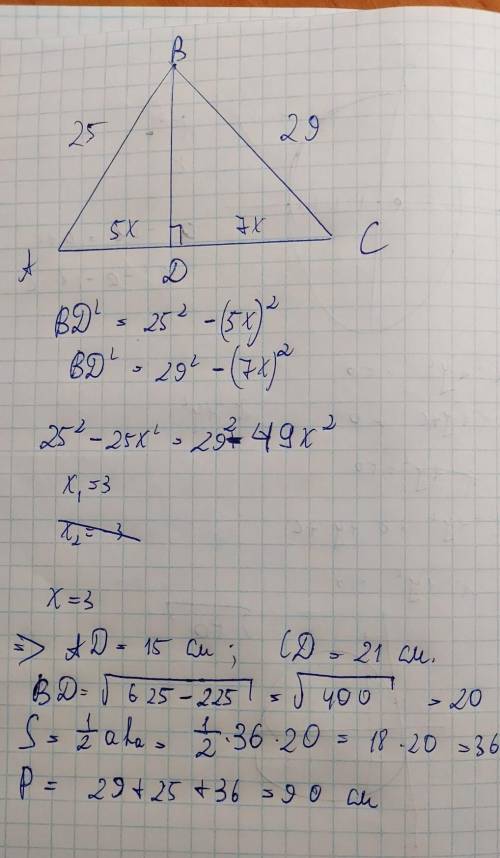 B
25 29
5x 7x
A D C
BD² = 25² - (5x)²
BD² = 29² - (7x)²
25² - 25x² = 29² - 49x²
x₁ = 3
x₂ = 3
x = 3
=> AD = 15 см; CD = 21 см.
BD = √625 - 225 = √400 = 20
S = 1/2 aha = 1/2 · 36 · 20 = 18 · 20 = 36
P = 29 + 25 + 36 = 90 см